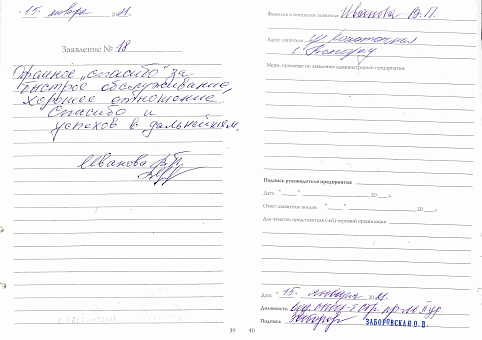 "15" января 2021.
Заявление № 18
Огромное "спасибо" за
быстрое обслуживание,
хорошее отношение,
Спасибо и
успехов в дальнейшем.
Иванова В.П.
39
Фамилия и инициалы заявителя Иванова В.П.
Адрес заявителя
Меры, принятые по заявлению администрацией предприятия:
Подпись руководителя предприятия
Дата "___" ______ 20__ г.
Ответ заявителю послан "___" ______ 20__ г.
Для отметок представителя (-ей) торговой организации
Дата "15" января 2021.
Должность
Подпись ЗАБОРОВСКАЯ О.В.
40